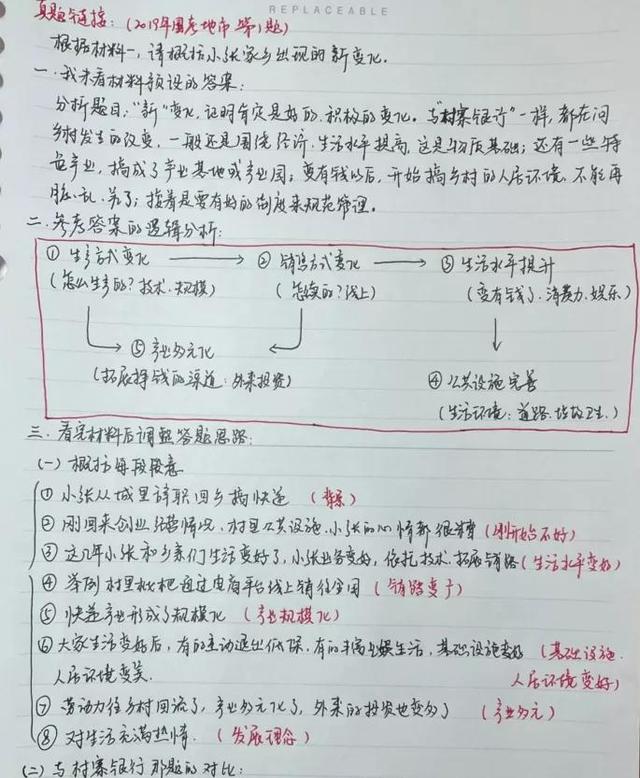 REPLACEABLE
真题链接：（2019年国考地市第1题）
根据材料一，请概括小张家乡出现的新变化。
一. 我未看材料预设的答案：
分析题目："新"变化，证明肯定是好的.积极的变化。与"村寨银行"一样，都在问
乡村发生的改变，一般还是围绕经济.生活水平提高，这是物质基础；还有一些特
色产业，搞成了产业基地或产业园；变有钱以后，开始搞乡村的人居环境，不能再
脏.乱.差了；接着是要有好的制度来规范管理。
二. 参考答案的逻辑分析：
① 生产方式变化 → ② 销售方式变化 → ③ 生活水平提升
（怎么生产的？技术.规模）（怎卖的？线上）（变有钱了.消费力.娱乐）
⑤ 产业多元化
（拓展挣钱的渠道：外来投资）
④ 公共设施完善
（生活环境：道路.垃圾卫生.）
三. 看完材料后调整答题思路：
（一）概括每段段意
① 小张从城里辞职回乡搞快递（背景）
② 刚回来创业经营情况，村里公共设施.小张的心情都很糟（刚开始不好）
③ 这几年小张和乡亲们生活变好了，小张业务变好，依托技术.拓展销路（生活水平变好）
④ 举例村里枇杷通过电商平台线上销往全国（销路变广）
⑤ 快递产业形成了规模化（产业规模化）
⑥ 大家生活变好后，有的主动退出低保.有的丰富业娱生活，基础设施变好（基础设施.
人居环境变美.人居环境变好）
⑦ 劳动力往乡村回流了，产业多元化了，外来的投资也变多了（产业多元）
⑧ 对生活充满热情.（发展理念）
（二）与村寨银行那题的对比：